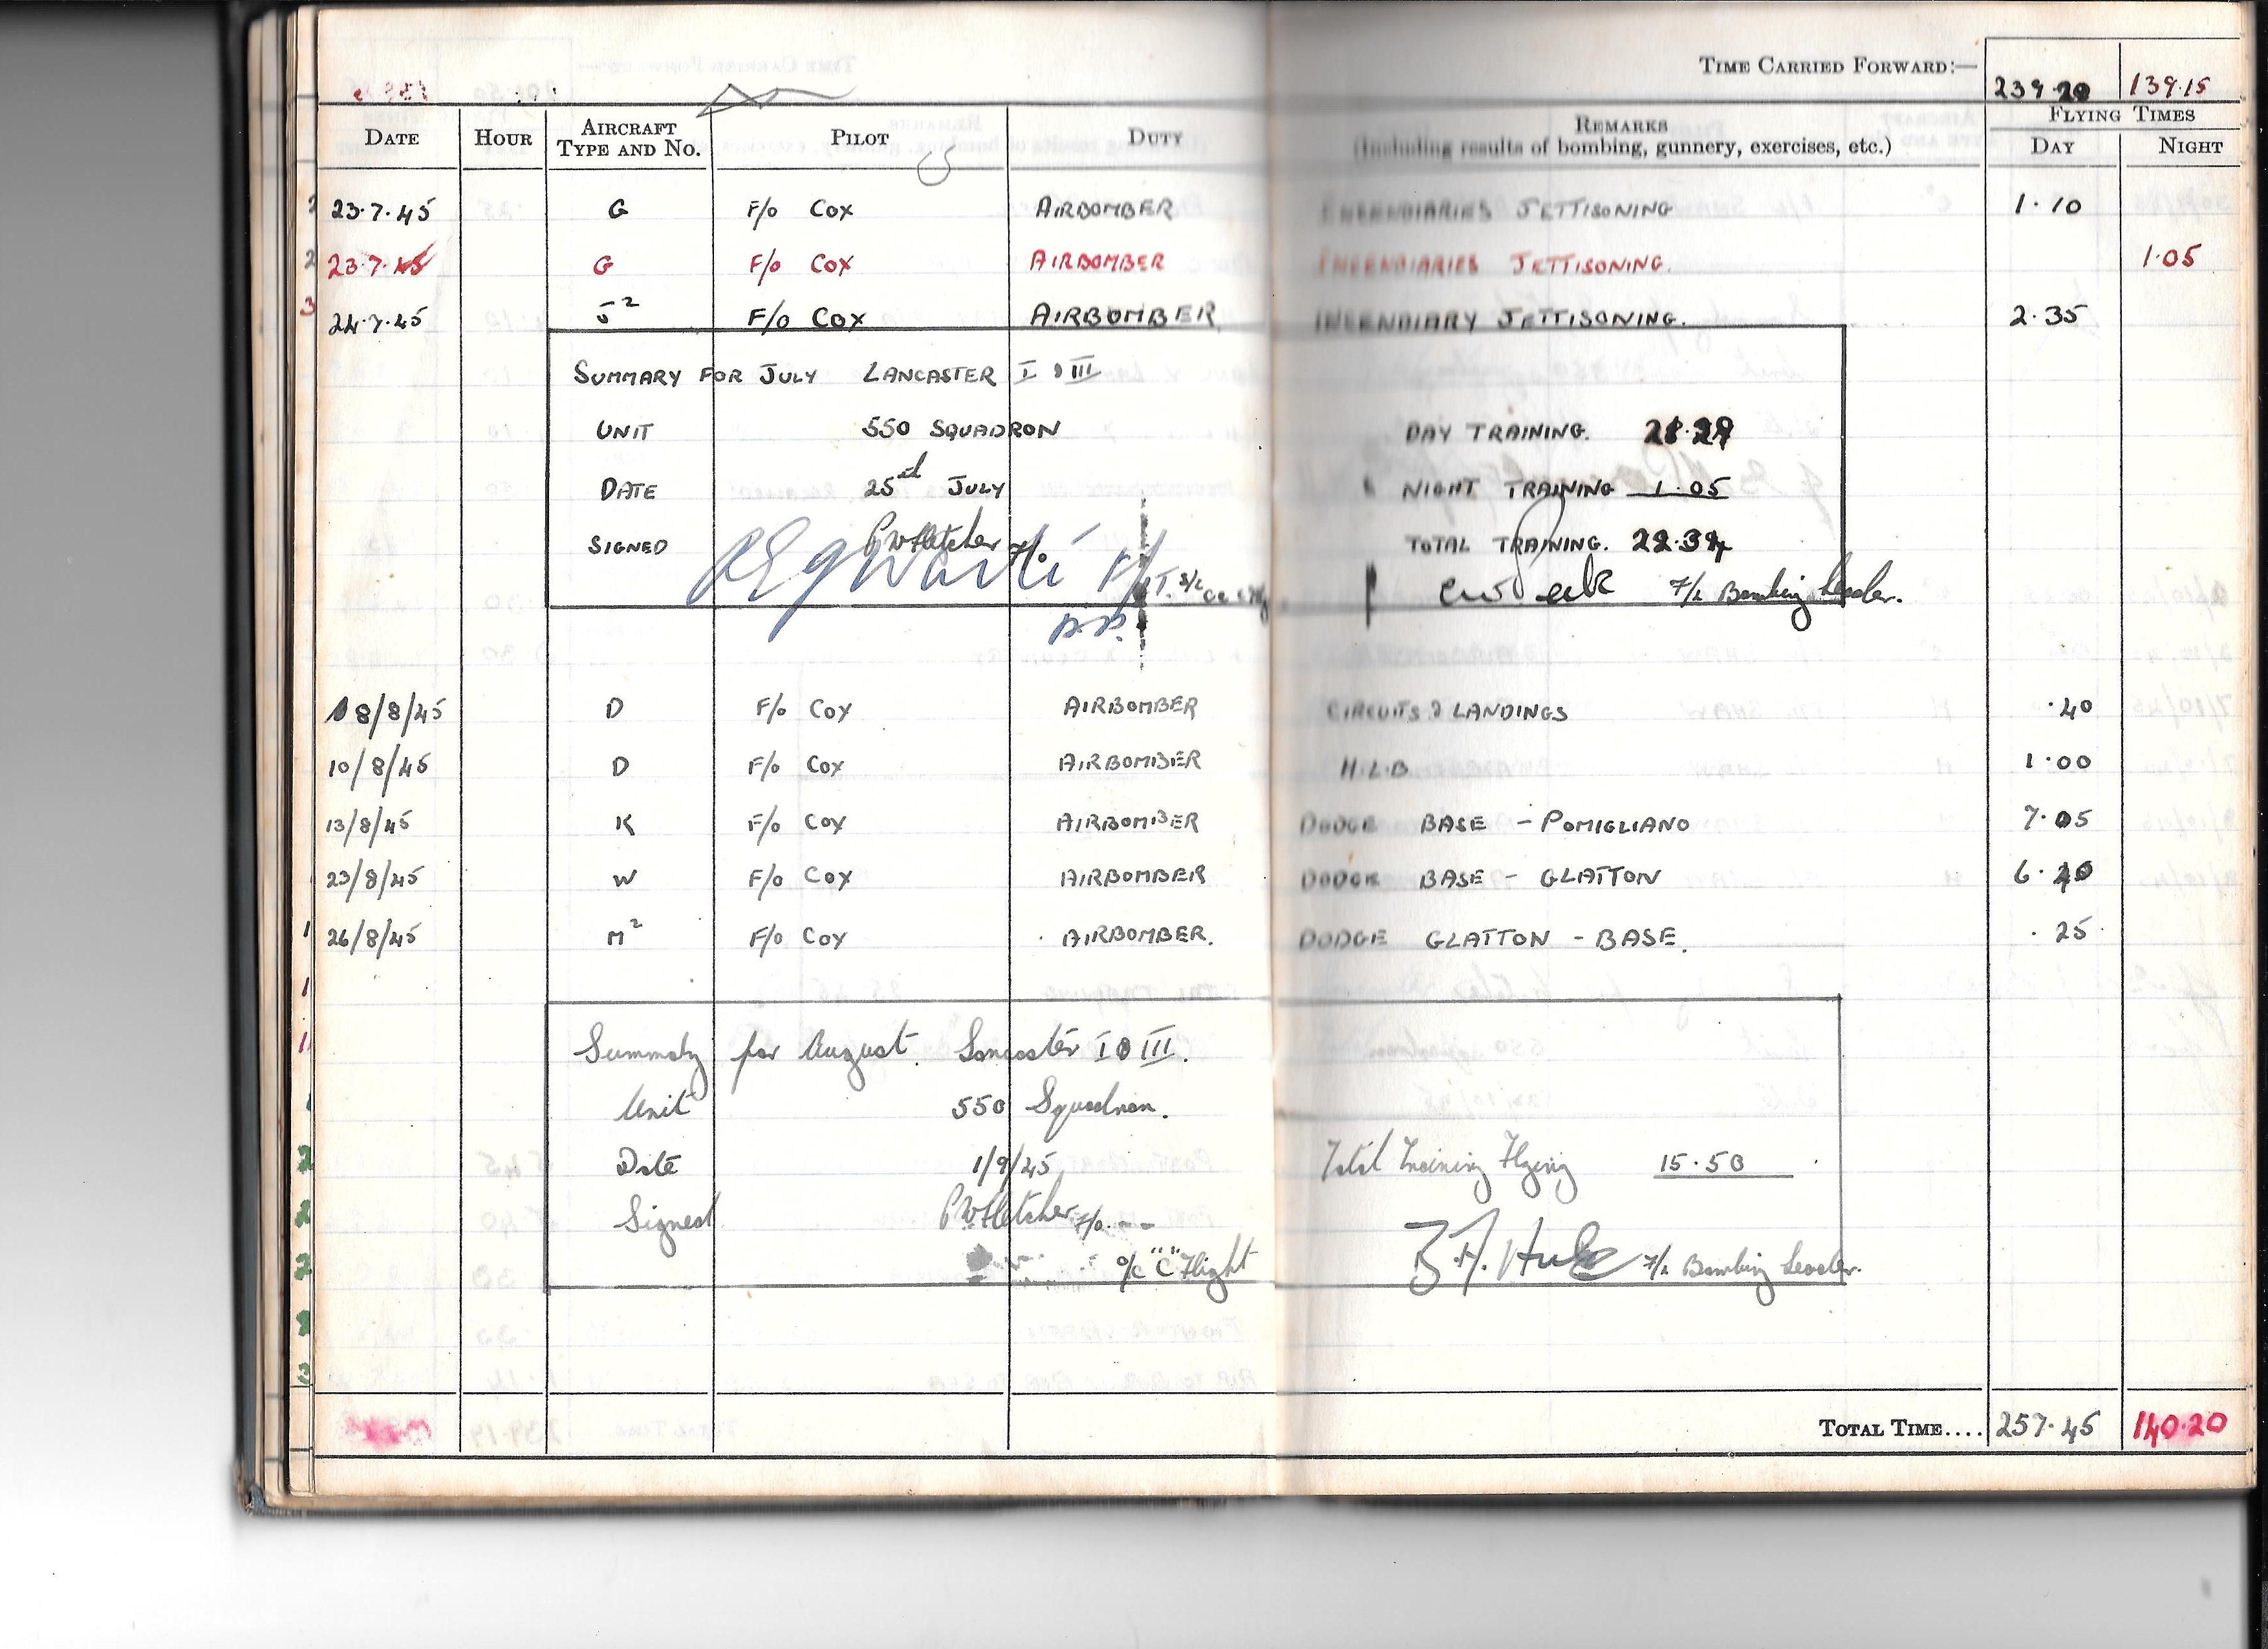 TIME CARRIED FORWARD:— 239.20 139.15
DATE HOUR AIRCRAFT TYPE AND No. PILOT DUTY REMARKS (Including results of bombing, gunnery, exercises, etc.) FLYING TIMES DAY NIGHT
23.7.45 G F/o COX AIRBOMBER INCENDIARIES JETTISONING 1.10
23.7.45 G F/o COX AIRBOMBER INCENDIARIES JETTISONING. 1.05
24.7.45 J² F/o COX AIRBOMBER INCENDIARY JETTISONING. 2.35
SUMMARY FOR JULY LANCASTER I & III
UNIT 550 SQUADRON DAY TRAINING.
DATE 25th JULY NIGHT TRAINING 1.05
SIGNED PWFletcher F/o. TOTAL TRAINING.
F/L Bombing Leader.
8/8/45 D F/o COX AIRBOMBER CIRCUITS & LANDINGS .40
10/8/45 D F/o COX AIRBOMBER H.L.B 1.00
13/8/45 K F/o COX AIRBOMBER DODGE BASE - POMIGLIANO 7.05
23/8/45 W F/o COX AIRBOMBER DODGE BASE - GLATTON 6.40
26/8/45 M² F/o COX AIRBOMBER. DODGE GLATTON - BASE. .25
Summary for August. Lancaster I & III.
Unit 550 Squadron.
Date 1/9/45 Total Training Flying 15.50
Signed PWFletcher F/o.
o/c "C" Flight F/L Bombing Leader.
TOTAL TIME.... 257.45 140.20